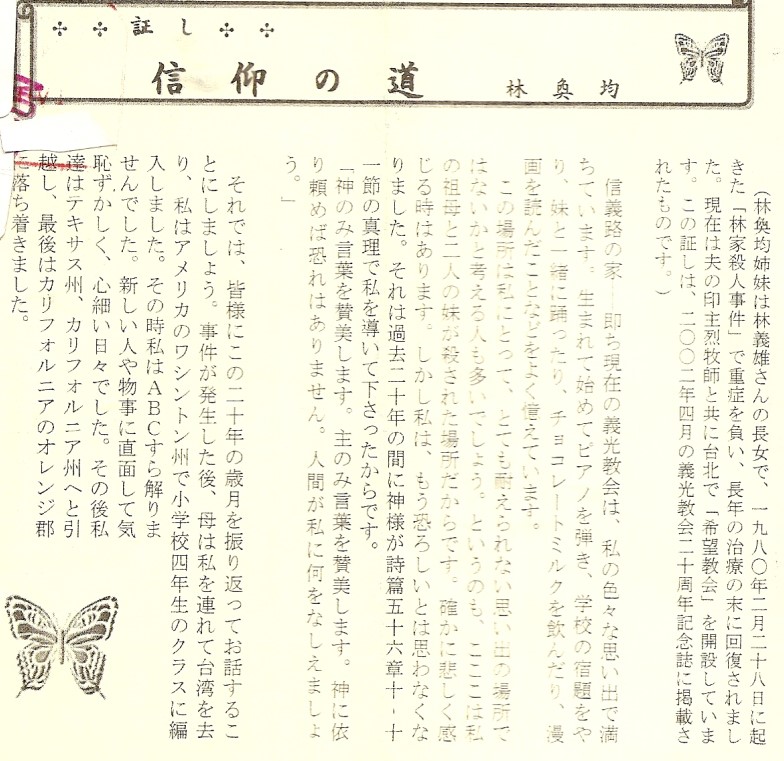 証し
信仰の道
林奐均
(林奐均姉妹は林義雄さんの長女で、一九八〇年二月二十八日に起
きた「林家殺人事件」で重症を負い、長年の治療の末に回復されまし
た。現在は夫の印主烈牧師と共に台北で「希望教会」を開設していま
す。この証しは、二〇〇二年四月の義光教会二十周年記念誌に掲載さ
れたものです。)
信義路の家──即ち現在の義光教会は、私の色々な思い出で満
ちています。生まれて始めてピアノを弾き、学校の宿題をや
り、妹と一緒に踊ったり、チョコレートミルクを飲んだり、漫
画を読んだことなどをよく憶えています。
この場所は私にとって、とても耐えられない思い出の場所で
はないかと考える人も多いでしょう。というのも、ここは私
の祖母と二人の妹が殺された場所だからです。確かに悲しく感
じる時はあります。しかし私は、もう恐ろしいとは思わなくな
りました。それは過去二十年の間に神様が詩篇五十六章十-十
一節の真理で私を導いて下さったからです。
「神のみ言葉を賛美します。主のみ言葉を賛美します。神に依
り頼めば恐れはありません。人間が私に何をなしえましょ
う。」
それでは、皆様にこの二十年の歳月を振り返ってお話するこ
とにしましょう。事件が発生した後、母は私を連れて台湾を去
り、私はアメリカのワシントン州で小学校四年生のクラスに編
入しました。その時私はABCすら解りま
せんでした。新しい人や物事に直面して気
恥ずかしく、心細い日々でした。その後私
達はテキサス州、カリフォルニア州へと引
越し、最後はカリフォルニアのオレンジ郡
に落ち着きました。